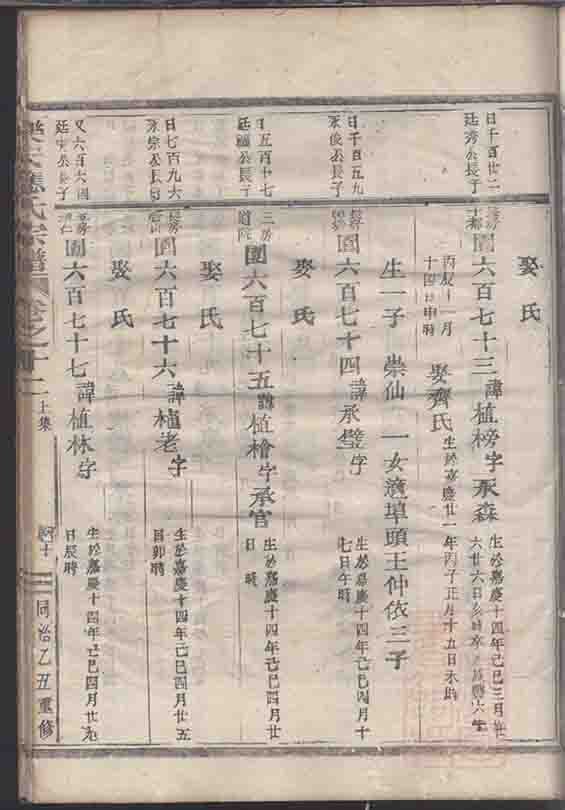 娶氏
日千百廿二
廷秀公長子
圍六百七十三諱植榜字承森
生於嘉慶十四年己巳三月廿
六廿六日
丙辰十一月
十四日申時
娶齊氏
生於嘉慶廿一年丙子正月十五日未時
生一子崇仙一女適埠頭王仲依三子
日千百五九
承俊公長子
長房
圍六百七十四諱承瑩字
生於嘉慶十四年己巳四月十
七日午時
娶氏
日五百十七
廷福公長子
三房
圍六百七十五諱植檜字承官
生於嘉慶十四年己巳四月廿
日時
娶氏
日七百九六
承宗公長子
長房
圍六百七十六諱植老字
生於嘉慶十四年己巳四月廿五
日卯時
娶氏
又六百六四
廷公長子
長房
圍六百七十七諱植林字
生於嘉慶十四年己巳四月廿九
日辰時
氏宗譜 卷之十二上集
四十
同治乙丑重修